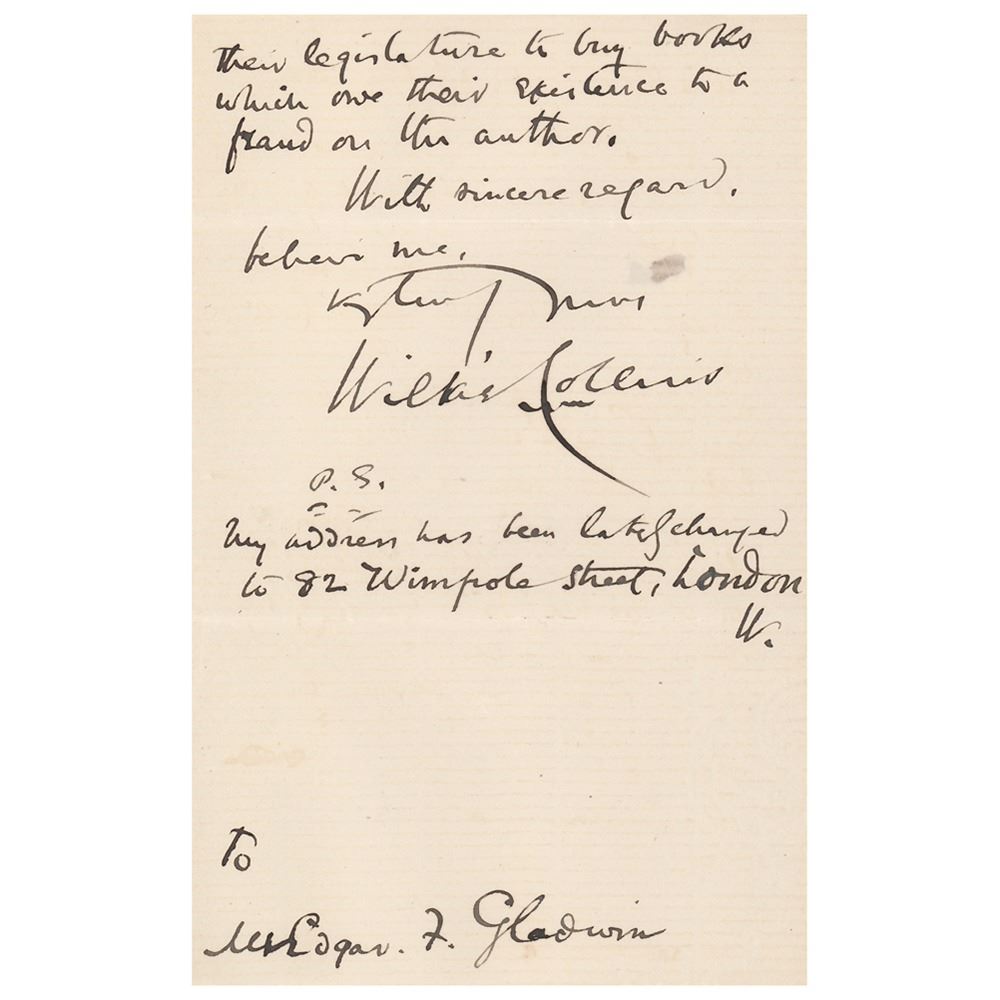 their legislature to buy books
which owe their existence to a
fraud on the author.
With sincere regard,
believe me,
yours
Wilkie Collins
P. S.
My address has been lately changed
to 82 Wimpole Street, London
W.
To
Mr Edgar. F. Gladwin